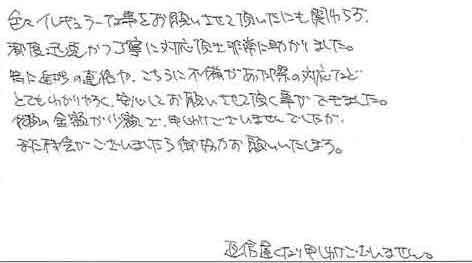 色々イレギュラーな事をお願いさせて頂いたにも関わらず、
都度迅速かつ丁寧に対応頂き非常に助かりました。
特に進捗の連絡や、こちらに不備があった際の対応など
とてもわかりやすく、安心してお願いさせて頂く事ができました。
依頼の金額が少額で、申し訳ございませんでしたが、
また機会がございましたら御協力お願いいたします。
返信遅くなり申し訳ございません。